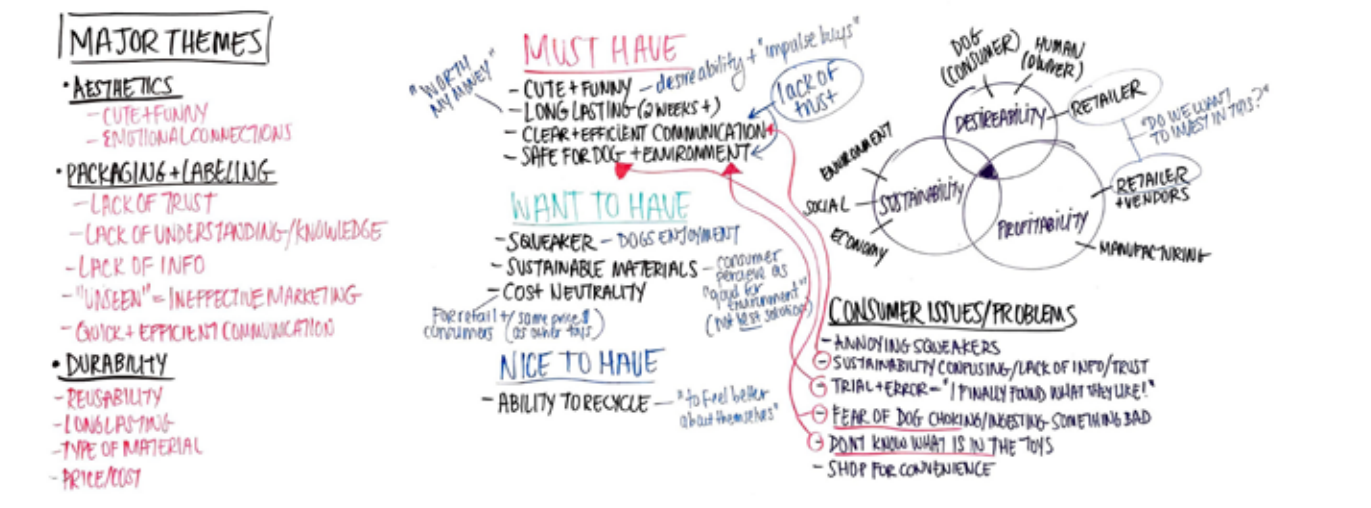 MAJOR THEMES
• AESTHETICS
- CUTE + FUNNY
- EMOTIONAL CONNECTIONS
• PACKAGING + LABELING
- LACK OF TRUST
- LACK OF UNDERSTANDING/KNOWLEDGE
- LACK OF INFO
- "UNSEEN" = INEFFECTIVE MARKETING
- QUICK + EFFICIENT COMMUNICATION
• DURABILITY
- REUSABILITY
- LONG LASTING
- TYPE OF MATERIAL
- PRICE/COST
MUST HAVE
- CUTE + FUNNY - desireability + "impulse buys"
"WORTH
MY MONEY"
- LONG LASTING (2 WEEKS +)
- CLEAR + EFFICIENT COMMUNICATION
- SAFE FOR DOG + ENVIRONMENT
lack of
trust
WANT TO HAVE
- SQUEAKER - DOGS ENJOYMENT
- SUSTAINABLE MATERIALS - consumer
percieve as
"good for
environment"
(not best solution)
- COST NEUTRALITY
For retail +
consumers
(same price
as other toys)
NICE TO HAVE
- ABILITY TO RECYCLE - "to feel better
about themselves"
DOG
(CONSUMER)
HUMAN
(OWNER)
DESIREABILITY
RETAILER
"DO WE WANT
TO INVEST IN THIS?"
ENVIRONMENT
SOCIAL
ECONOMY
SUSTAINABILITY
PROFITABILITY
RETAILER
+ VENDORS
MANUFACTURING
CONSUMER ISSUES/PROBLEMS
- ANNOYING SQUEAKERS
- SUSTAINABILITY CONFUSING/LACK OF INFO/TRUST
- TRIAL + ERROR - "I FINALLY FOUND WHAT THEY LIKE!"
- FEAR OF DOG CHOKING/INGESTING SOMETHING BAD
- DONT KNOW WHAT IS IN THE TOYS
- SHOP FOR CONVENIENCE